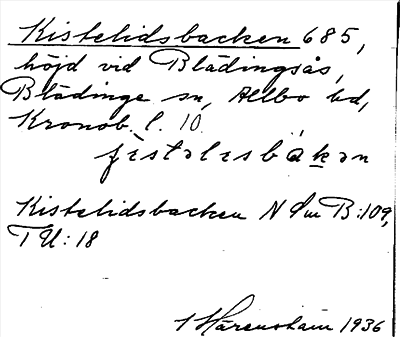 Kistelidsbacken 685,
höjd vid Blädingsås,
Blädinge sn, Allbo hd,
Kronob. l. 10
Kistelidsbacken N Sm B:109,
T U: 18
1936